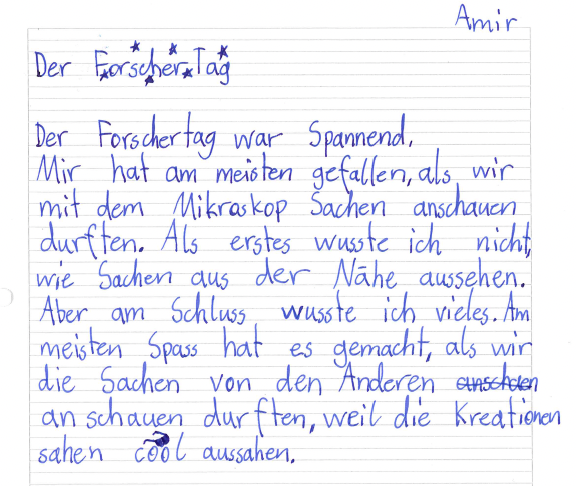 Amir
Der Forscher Tag
Der Forschertag war Spannend.
Mir hat am meisten gefallen, als wir
mit dem Mikroskop Sachen anschauen
durften. Als erstes wusste ich nicht,
wie Sachen aus der Nähe aussehen.
Aber am Schluss wusste ich vieles. Am
meisten Spass hat es gemacht, als wir
die Sachen von den Anderen
anschauen durften, weil die Kreationen
sahen cool aussahen.